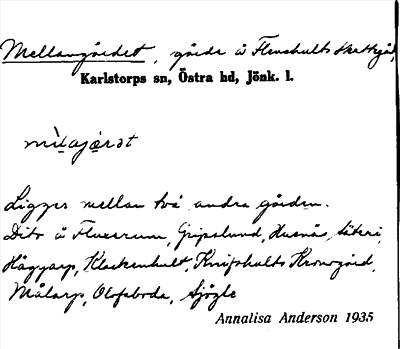 Mellangärdet, gärde å Flenshults Skattegård,
Karlstorps sn, Östra hd, Jönk. l.
Ligger mellan två andra gärden.
Dito å Fluxerum, Gripslund, Husnäs, säteri,
Häggarp, Klackenhult, Knifshults Kronogård,
Målarp, Olofsboda, Sjögle
Annalisa Anderson 1935